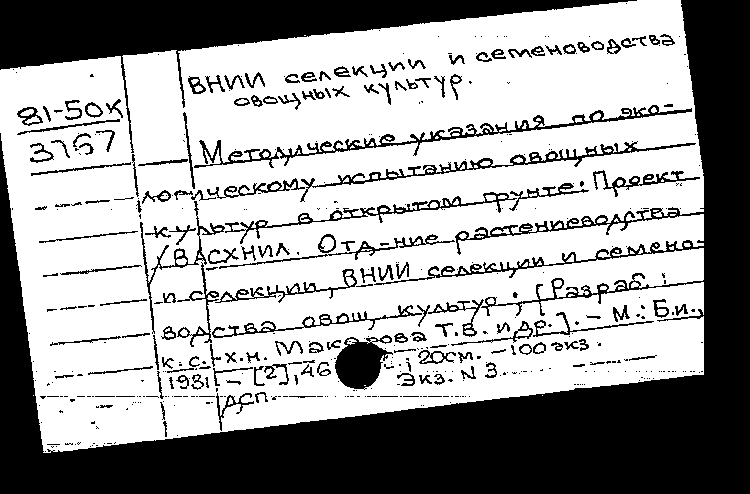 ВНИИ селекции и семеноводства
овощных культур.
81-50к
3767
Методические указания по эко-
логическому испытанию овощных
культур в открытом грунте: Проект
/ВАСХНИЛ. Отд-ние растениеводства
и селекции, ВНИИ селекции и семено-
водства овощ. культур; [Разраб.:
к.с.-х.н. Макарова Т.В. и др.]. - М.: Б.и.,
1981. - [2], 46 ; 20см. - 100 экз.
Экз. N 3.
ДСП.